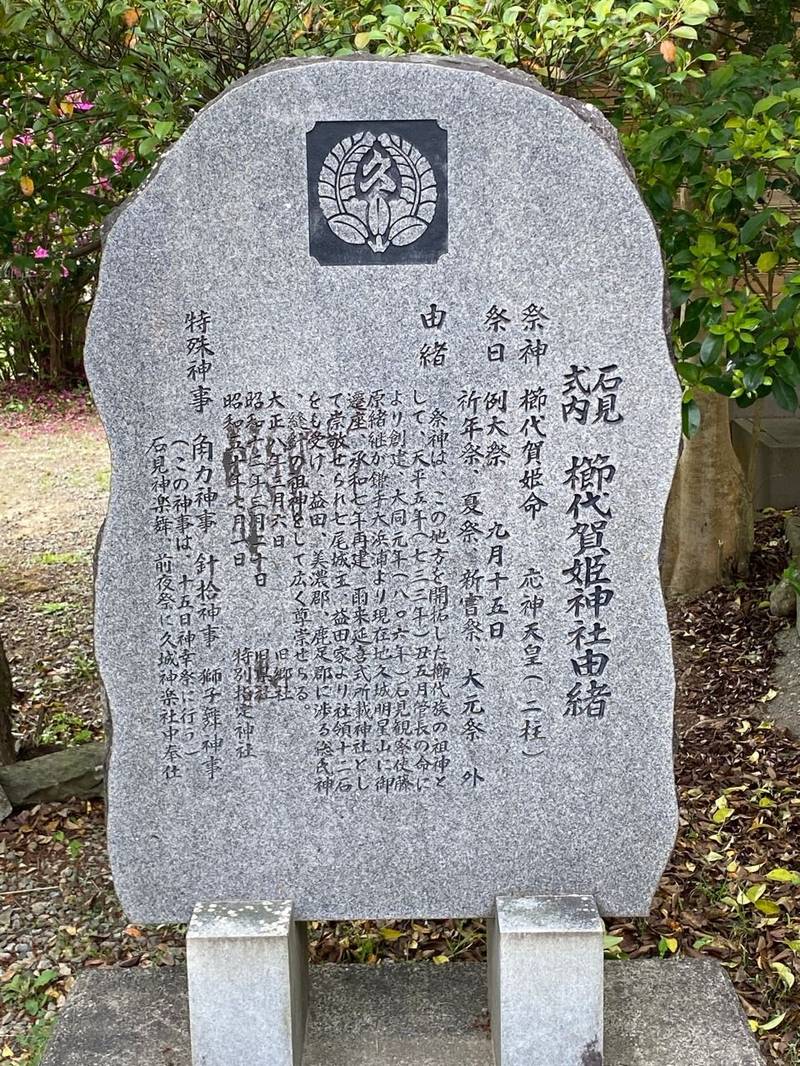 久
石見
式内
櫛代賀姫神社由緒
祭神 櫛代賀姫命 応神天皇(二柱)
祭日 例大祭 九月十五日
祈年祭、夏祭、新嘗祭、大元祭 外
由緒
祭神は、この地方を開拓した櫛代族の祖神と
して、天平五年(七三三年)丑五月管長の命に
より創建、大同元年(八〇六年)石見観察使藤
原緒継が鎌手大浜浦より現在地久城明星山に御
遷座、承和七年再建、雨来延喜式所載神社とし
て崇敬せられ七尾城主、益田家より社領十二石
をも受け、益田、美濃郡、鹿足郡に渉る総氏神
、縫針の祖神として広く尊崇せらる。
大正八年三月六日 旧郷社
昭和十三年三月 十日 旧県社
昭和 年七月一日 特別指定神社
特殊神事 角力神事 針拾神事 獅子舞神事
(この神事は、十五日神幸祭に行う)
石見神楽舞、前夜祭に久城神楽社中奉仕